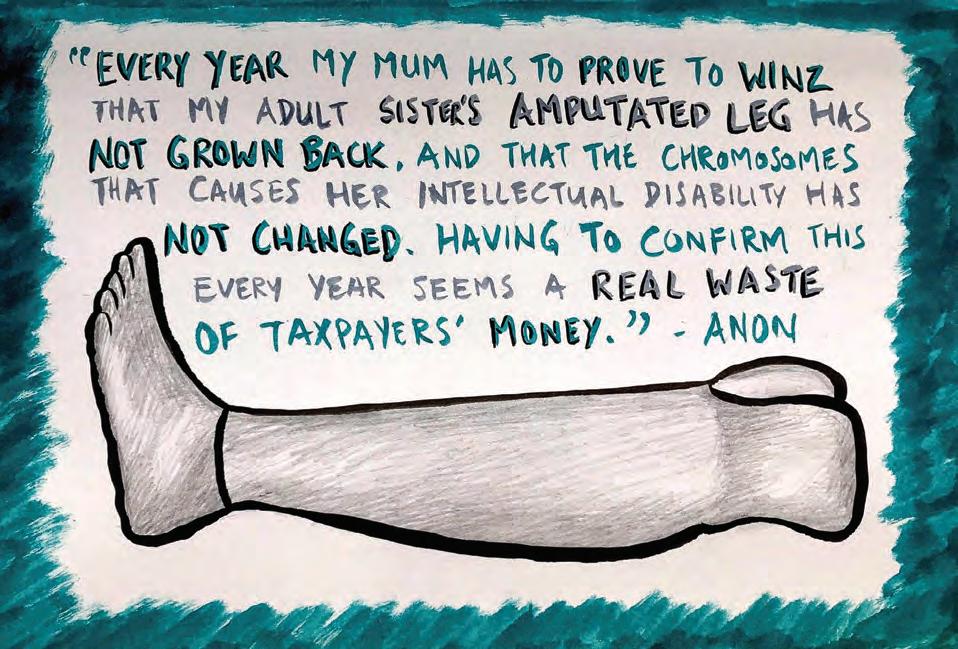 "EVERY YEAR MY MUM HAS TO PROVE TO WINZ
THAT MY ADULT SISTER'S AMPUTATED LEG HAS
NOT GROWN BACK, AND THAT THE CHROMOSOMES
THAT CAUSES HER INTELLECTUAL DISABILITY HAS
NOT CHANGED. HAVING TO CONFIRM THIS
EVERY YEAR SEEMS A REAL WASTE
OF TAXPAYERS' MONEY." - ANON